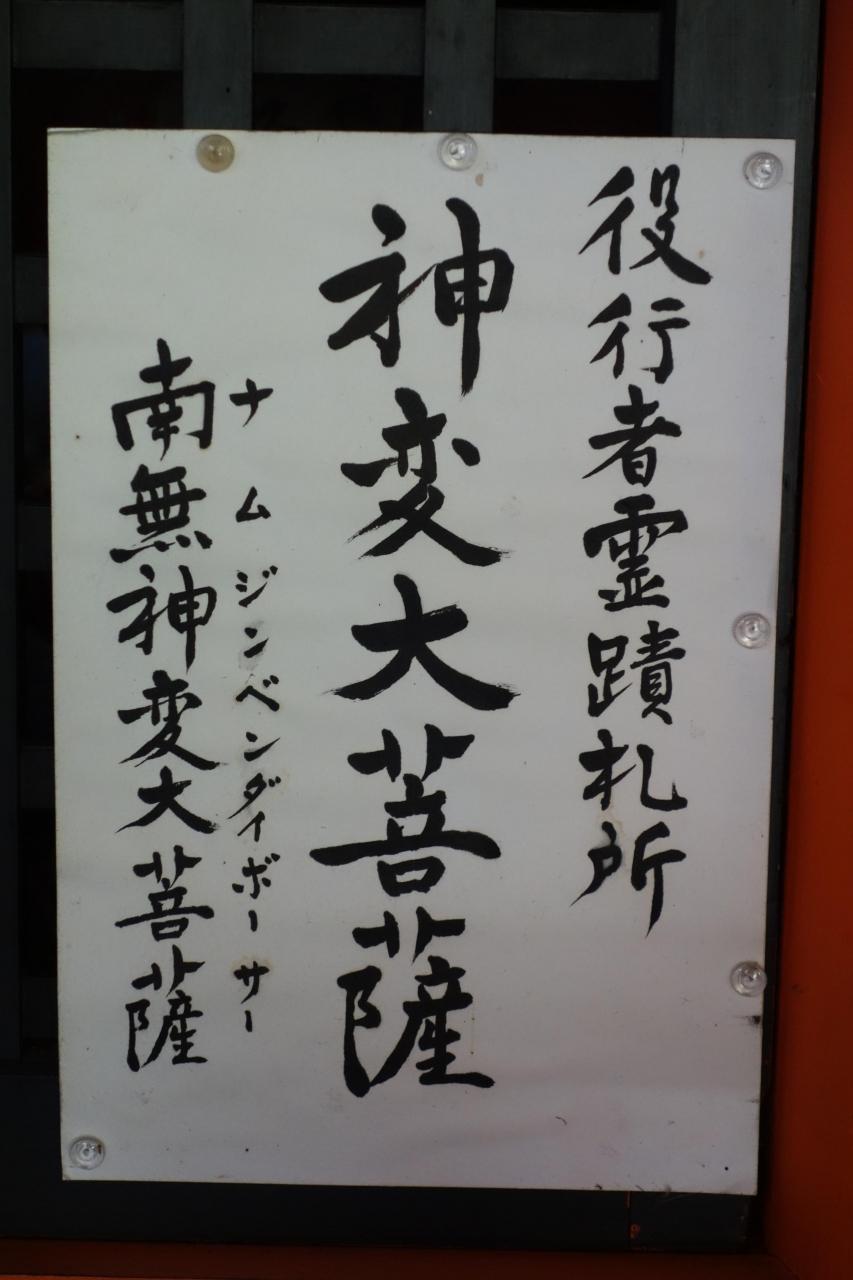 役行者霊蹟札所
神変大菩薩
ナムジンベンダイボーサー
南無神変大菩薩